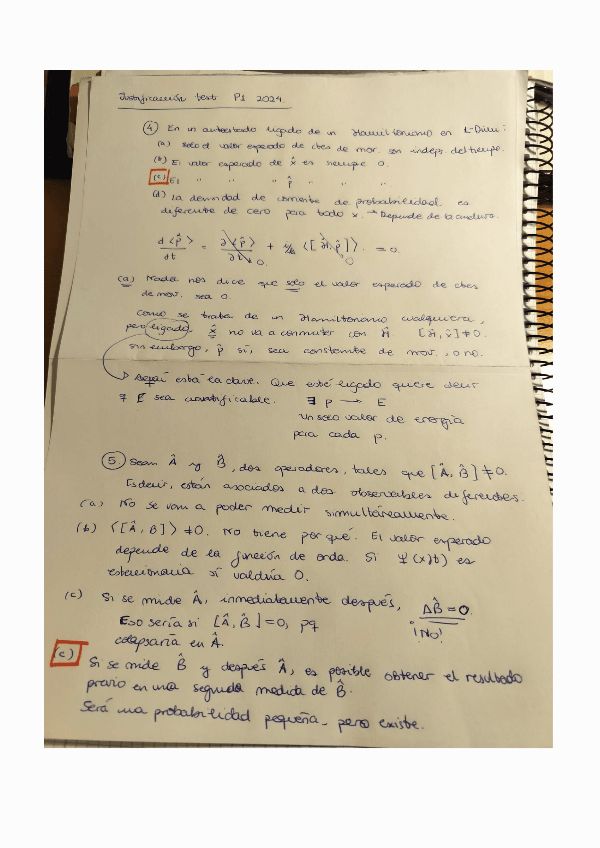 Justificación test P1 2024.
④ En un autoestado ligado de un Hamiltoniano en 1-Dim:
(a) solo el valor esperado de ctes de mov. son indep. del tiempo.
(b) El valor esperado de x̂ es siempre 0.
(c) El " " " p̂ " " "
(d) La densidad de corriente de probabilidad es
diferente de cero para todo x. → Depende de la
d⟨p̂⟩/dt = ∂⟨p̂⟩/∂t + i/ħ ⟨[Ĥ, p̂]⟩ = 0.
0. 0
(a) Nada nos dice que solo el valor esperado de ctes
de mov. sea 0.
Como se trata de un Hamiltoniano cualquiera,
pero ligado. x̂ no va a conmutar con Ĥ. [Ĥ, x̂] ≠ 0.
sin embargo, p̂ sí, sea constante de mov., o no.
Aquí está la clave. Que esté ligado quiere decir
q E sea cuantificable. ∃ p → E
un solo valor de energía
para cada p.
⑤ Sean Â y B̂, dos operadores, tales que [Â, B̂] ≠ 0.
Es decir, están asociados a dos observables diferentes.
(a) No se van a poder medir simultáneamente.
(b) ⟨[Â, B]⟩ ≠ 0. No tiene por qué. El valor esperado
depende de la función de onda. Si Ψ(x,t) es
estacionaria sí valdría 0.
(c) Si se mide Â, inmediatamente después, ΔB̂ = 0.
Eso sería si [Â, B̂] = 0, pq ¡No!
colapsaría en Â.
(c)
Si se mide B̂ y después Â, es posible obtener el resultado
previo en una segunda medida de B̂.
Será una probabilidad pequeña - pero existe.